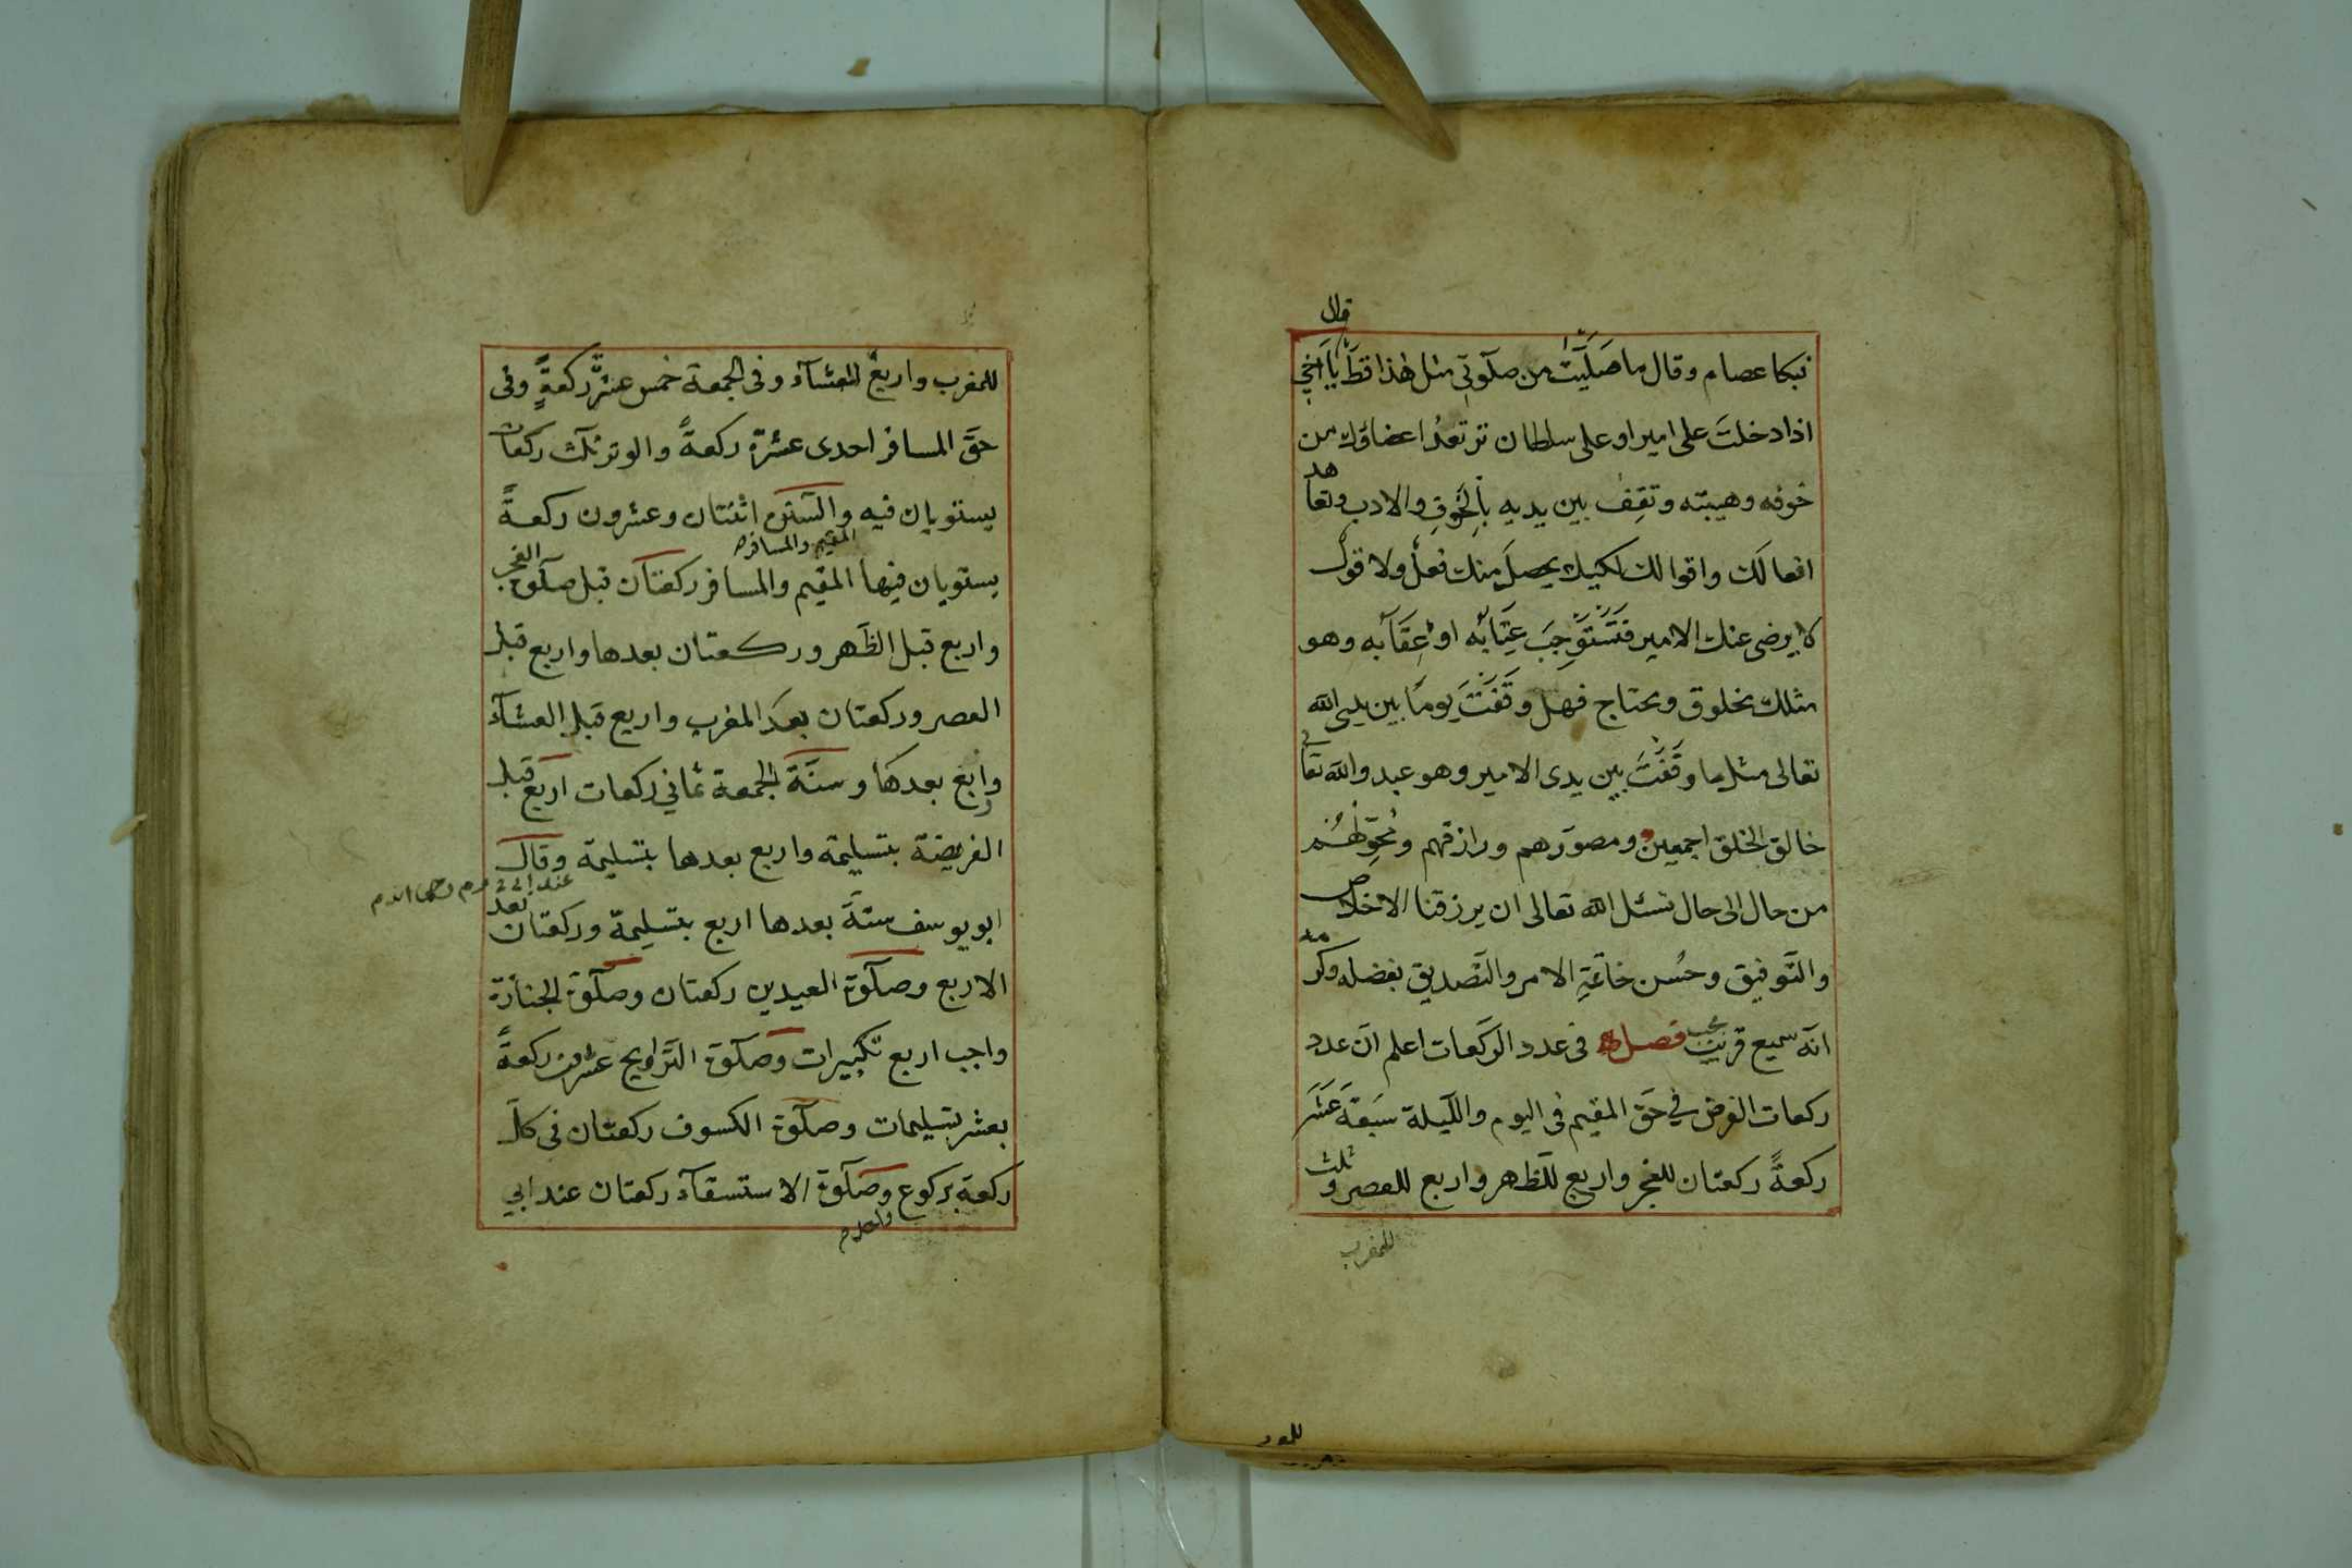 قال
فبكا عصام وقال ما صَلَّيْتُ من صلوتي مثل هذا قطّ يا اخي
اذا دخلتَ على امير او على سلطان ترتعدُ اعضاؤك من
خوفه وهيبته وتقِف بين يديه بالخَوفِ والادب وتعاهد
افعالَك واقوالك لكيلا يحصلَ منك فعلٌ ولا قولٌ
لا يرضى عنك الامير فتَسْتَوْجِبَ عِتَابَه او عِقَابه وهو
مثلك مخلوق ومحتاج فهل وقَفْتَ يومًا بين يدي الله
تعالى مثل ما وقَفْتَ بين يدى الامير وهو عبد والله تعا
خالق الخلق اجمعين ومصوّرهم ورازقهم ومُحوّلهُم
من حال الى حال نسئل الله تعالى ان يرزقنا الاخلاص
والتَّوفيق وحُسن خاتمةِ الامر والتّصديق بفضله وكرمه
انّه سميع قريب مجيب فصل فى عدد الركعات اعلم انّ عدد
ركعات الفرض في حَق المقيم فى اليوم والليلة سَبعَةَ عَشَر
ركعةً ركعتان للفجر واربع للظهر واربع للعصر وثلث
للمغرب
للمغرب واربعٌ للعشآء وفى الجمعة خمس عشرَ ركعةً وفى
حقّ المسافر احدى عشرة ركعةً والوتر ثلث ركعات
يستويان فيه والسّنن اثنتان وعشرون ركعةً
المقيم والمسافر
يستويان فيها المقيم والمسافر ركعتان قبل صلوة الفجر
واربع قبل الظَهر وركعتان بعدها واربع قبل
العصر وركعتان بعدَ المغرب واربع قبل العشآء
واربع بعدها وسنّة الجمعة ثمانى ركعات اربع قبل
الفريضة بتسليمة واربع بعدها بتسليمة وقال
ابو يوسف ستّة بعدها اربع بتسليمة وركعتان بعد
الاربع وصلوة العيدين ركعتان وصلوة الجنازة
واجب اربع تكبيرات وصلوة التّراويح عشرون ركعةً
بعشر تسليمات وصلوة الكسوف ركعتان فى كلّ
ركعة بركوع وصلوة الاستسقآء ركعتان عند ابي